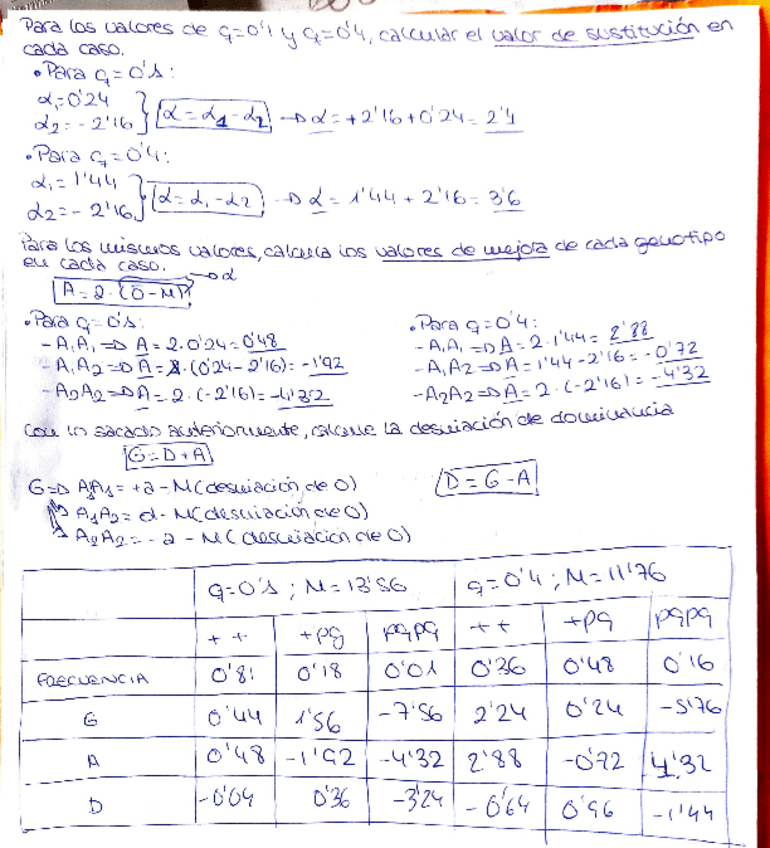 Para los valores de q=0'1 y q=0'4, calcular el valor de sustitución en
cada caso.
• Para q=0'1:
α₁=0'24
α₂=-2'16 } α=α₁-α₂ → α=+2'16+0'24=2'4
• Para q=0'4:
α₁=1'44
α₂=-2'16 } α=α₁-α₂ → α=1'44+2'16=3'6
Para los mismos valores, calcula los valores de mejora de cada genotipo
en cada caso.
A=2·(O-M) → α
• Para q=0'1:
- A₁A₁ ⇒ A=2·0'24=0'48
- A₁A₂ ⇒ A=·(0'24-2'16)=-1'92
- A₂A₂ ⇒ A=2·(-2'16)=-4'32
• Para q=0'4:
- A₁A₁ ⇒ A=2·1'44=2'88
- A₁A₂ ⇒ A=1'44-2'16=-0'72
- A₂A₂ ⇒ A=2·(-2'16)=-4'32
Con lo sacado anteriormente, calcule la desviación de dominancia
G=D+A
D=G-A
G ⇒ A₁A₁=+a-M(desviación de O)
A₁A₂=d-M(desviación de O)
A₂A₂=-a-M(desviación de O)
q=0'1; M=13'56 q=0'4; M=11'76
++ +pg pgpg ++ +pg pgpg
FRECUENCIA 0'81 0'18 0'01 0'36 0'48 0'16
G 0'44 1'56 -7'56 2'24 0'24 -5'76
A 0'48 -1'92 -4'32 2'88 -0'72 4'32
D -0'04 0'36 -3'24 -0'64 0'96 -1'44